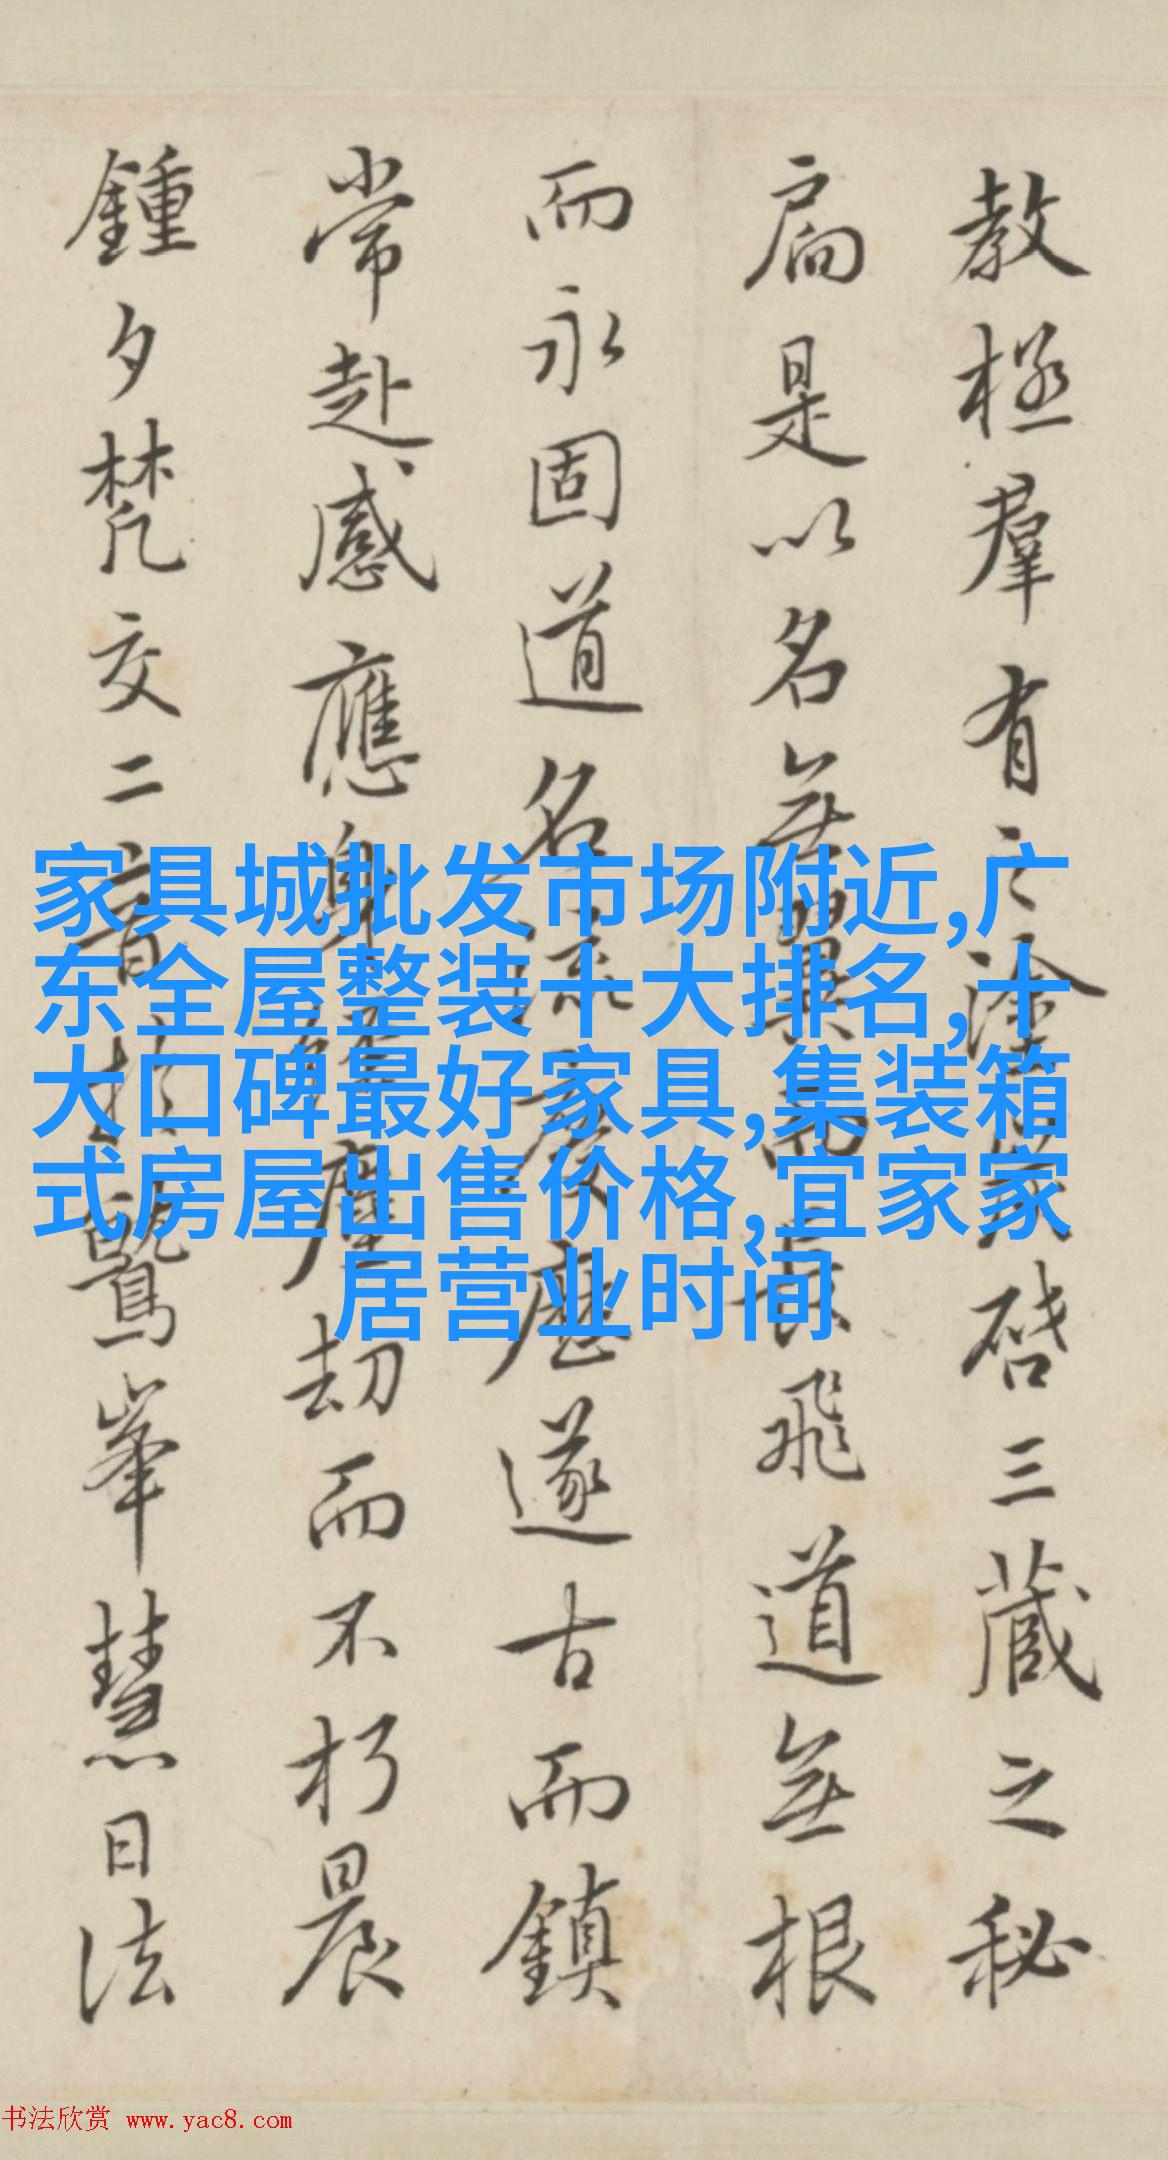 教極羣有之塗炭啓三藏之秘
扃是以名無翼而長飛道無根
而永固道名流慶歷遂古而鎮
常赴感應身經塵劫而不朽晨
鍾夕梵交二音於鷲峯慧日法
家具城批发市场附近,广
东全屋整装十大排名,十
大口碑最好家具,集装箱
式房屋出售价格,宜家家
居营业时间
书法欣赏 www.yac8.com